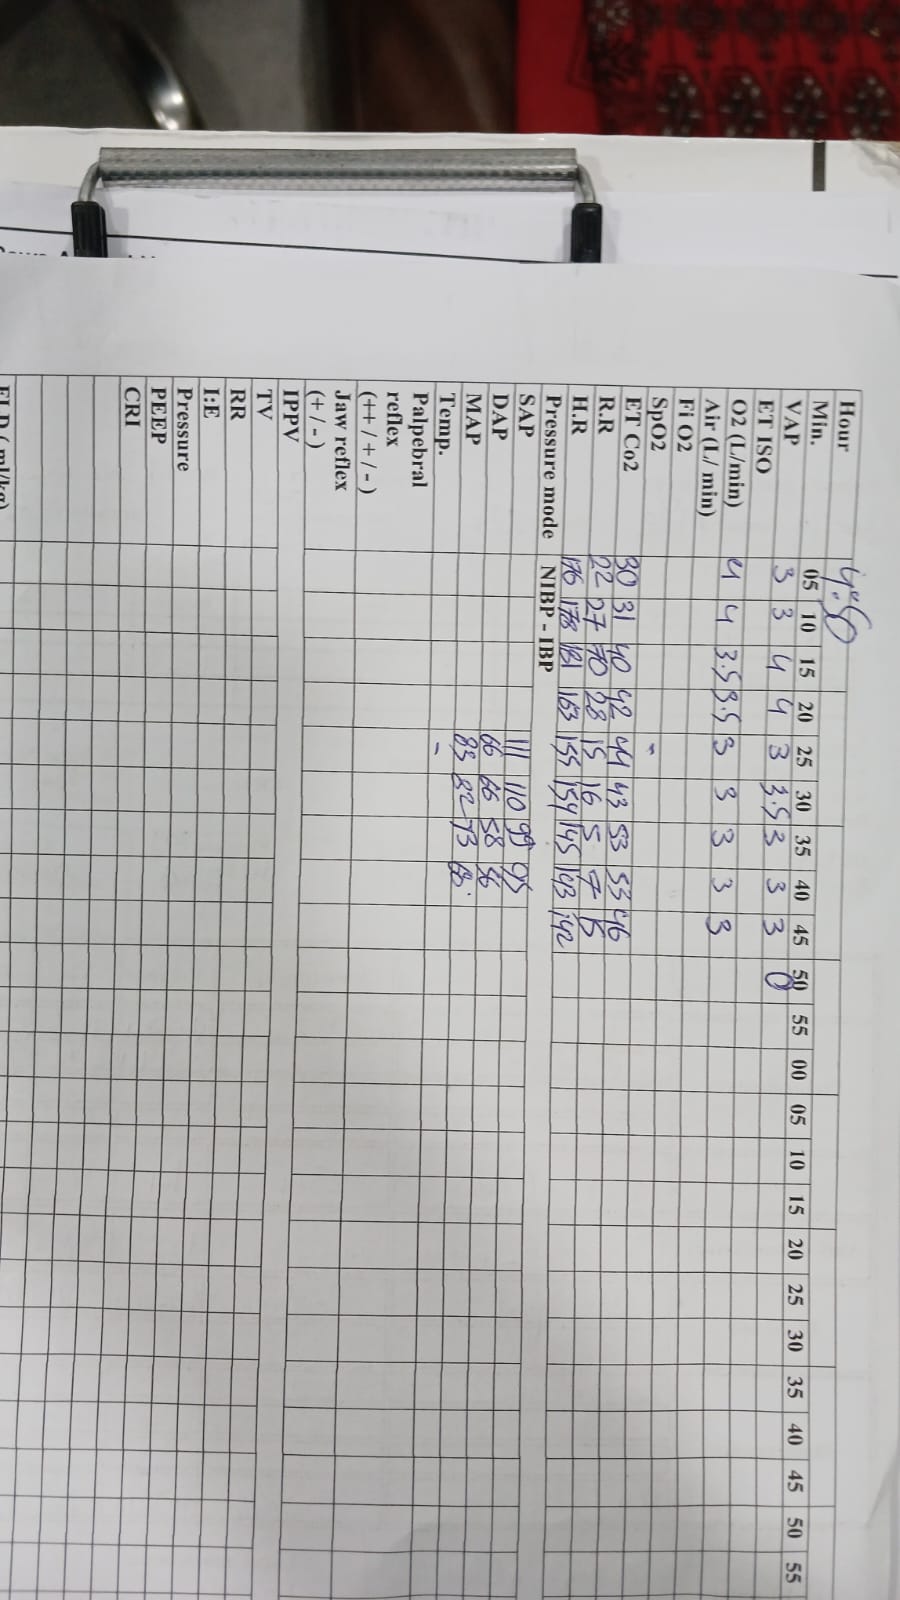 Hour 4:50
Min. 05 10 15 20 25 30 35 40 45 50 55 00 05 10 15 20 25 30 35 40 45 50 55
VAP 3 3 4 4 3 3.5 3 3 3 0
ET ISO
O2 (L/min) 4 4 3.5 3.5 3 3 3 3 3
Air (L/ min)
Fi O2
SpO2 -
ET Co2 30 31 40 42 44 43 53 53 46
R.R 22 27 70 28 15 16 5 7
H.R 176 178 181 163 155 154 145 143 142
Pressure mode NIBP - IBP
SAP 111 110 99 95
DAP 66 66 58 56
MAP 83 82 73
Temp. -
Palpebral
reflex
(++ / + / - )
Jaw reflex
(+ / - )
IPPV
TV
RR
I:E
Pressure
PEEP
CRI